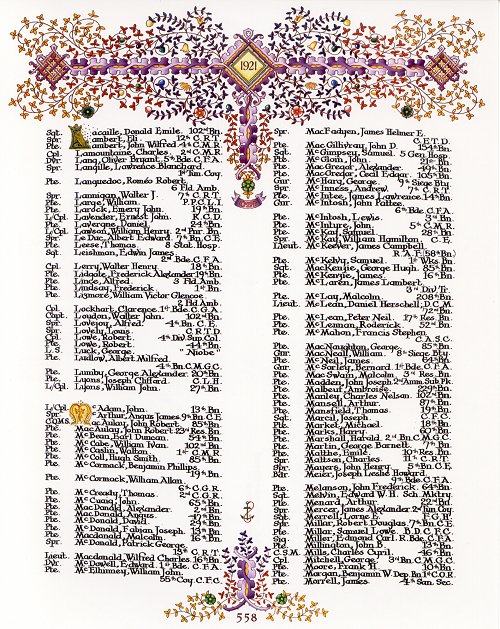 1921
Sgt. Lacaille, Donald Emile 102nd Bn.
Spr. Lambert, Eli 12th C.R.T.
Pte. Lambert, John Wilfred 4th C.M.R.
Cpl. Lamountaine, Charles 2nd C.M.R.
Dvr. Lang, Oliver Bryant, 5th Bde. C.F.A.
Spr. Langille, Lawrence Blanchard
1st Tun. Coy.
Pte. Languedoc, Roméo Robert
6 Fld. Amb.
Spr. Lannigan, Walter J. 7th C.R.T.
Pte. Large, William P.P.C.L.I.
Pte. Larock, Emery John 19th Bn.
L/Cpl. Lavender, Ernest John R.C.D.
Pte. Lavergne, Daniel 24th Bn.
L/Cpl. Lawson, William Henry 2nd Pnr. Bn.
Spr. Le Duc, Albert Edward 7th Bn. C.E.
Pte. Leese, Thomas 8 Stat. Hosp.
Sgt. Leishman, Edwin James
2nd Bde. C.F.A.
Cpl. Lerry, Walter Henry 18th Bn.
Pte. Lidgate, Frederick Alexander 19th Bn.
Pte. Linde, Alfred 3 Fld. Amb.
Pte. Lindsay, Frederick 1st Bn.
Pte. Lismore, William Victor Glencoe
2 Fld. Amb.
Cpl. Lockhart, Clarence 1st Bde. C.G.A.
Capt. Loudon, Walter John 102nd Bn.
Spr. Lovejoy, Alfred 4th Bn. C.E.
Spr. Lovely, Louis C.R.T.D.
Cpl. Lowe, Robert 4th Div. Sup. Col.
Pte. Lowe, Robert 44th Bn.
L.S. Luck, George "Niobe"
Pte. Ludlow, Albert Milfred
4th Bn. C.M.G.C.
Pte. Lumby, George Alexander 20th Bn.
Pte. Lyons, Joseph Clifford C.L.H.
L/Cpl. Lyons, William John 27th Bn.
L/Cpl. McAdam, John 13th Bn.
Spr. McArthur, Angus James 9th Bn. C.E.
C.Q.M.S. MacAulay, John Robert 85th Bn.
Pte. MacAulay, John Robert 23rd Res. Bn.
Pte. McBean, Earl Duncan 54th Bn.
Pte. McCabe, William Ivan 102nd Bn.
Pte. McCaslin, Walton 1st C.M.R.
Pte. McColl, Hugh Smith 85th Bn.
Pte. McCormack, Benjamin Philips
19th Bn.
Pte. McCormack, William Allan
6th C.G.R.
Pte. McCready, Thomas 2nd C.G.R.
Pte. McCuaig, John 65th Bn.
Pte. MacDonald, Alexander 2nd Bn.
Pte. MacDonald, Angus 27th Bn.
Pte. McDonald, David 29th Bn.
Pte. McDonald, Fabian Joseph 13th Bn.
Pte. Macdonald, Malcolm 16th Bn.
Spr. McDonald, Patrick George
13th C.R.T.
Lieut. Macdonald, Wilfred Charles 16th Bn.
Dvr. McDowell, Edward 1st Bde. C.F.A.
Pte. McElhinney, William John
55th Coy. C.F.C.
Spr. MacFadyen, James Helmer E.
C.E.T.D.
Pte. MacGillivray, John D. 154th Bn.
Sgt. McGimpsey, Samuel 5 Gen. Hosp.
Pte. McGloin, John 21st Bn.
Pte. MacGregor, Alexander 49th Bn.
Pte. MacGregor, Cecil Edgar 105th Bn.
Gnr. McHarg, George 9th Siege Bty.
Spr. McInnes, Andrew 7th C.R.T.
Pte. McIntee, James Lawrence 14th Bn.
Gnr. McIntosh, John Father
6th Bde. C.F.A.
Pte. McIntosh, Lewis 3rd Bn.
Pte. McIntyre, John 5th C.M.R.
Pte. McKag, Samuel 28th Bn.
Spr. McKay, William Hamilton C.E.
Lieut. McKeever, James Campbell
R.A.F. (58th Bn.)
Pte. McKelvy, Samuel 1st Wks. Bn.
Sgt. MacKenzie, George Hugh 85th Bn.
Pte. McKenzie, James 16th Bn.
Pte. McLaren, James Lambert
3rd Div. Tr.
Pte. McLay, Malcolm 208th Bn.
Lieut. McLean, Daniel Herschell, D.C.M.
72nd Bn.
Pte. McLean, Peter Neil 17th Res. Bn.
Pte. McLennan, Roderick 52nd Bn.
Pte. McMahon, Francis Stephen
C.A.S.C.
Pte. MacNaughton, George 85th Bn.
Gnr. MacNeall, William 8th Siege Bty.
Pte. McNeil, James 64th Bn.
Gnr. McSorley, Bernard 1st Bde. C.F.A.
Pte. MacSwain, Malcolm 3rd Res. Bn.
Pte. Madden, John Joseph 2nd Amm. Sub Pk.
Pte. Malbeuf, Ambroise 229th Bn.
Pte. Manley, Charles Nelson 102nd Bn.
Pte. Mansell, Arthur 87th Bn.
Pte. Mansfield, Thomas 19th Bn.
Sgt. Marcil, Joseph C.F.C.
Pte. Market, Michael 18th Bn.
Pte. Marks, Harry 60th Bn.
Pte. Marshall, Harold 2nd Bn. C.M.G.C.
Pte. Martin, George Barnett 7th Bn.
Pte. Matthe, Emile 10th Res. Bn.
Spr. Mattson, Charles 11th C.R.T.
Spr. Mayers, John Henry 5th Bn. C.E.
Ftr. Meier, Joseph Leslie Howard
9th Bde. C.F.A.
Pte. Melanson, John Frederick 64th Bn.
Sgt. Melvin, Edward W.H. Sch. Mktry.
Pte. Menard, Arthur 22nd Bn.
Spr. Mercer, James Alexander 2nd Tun. Coy.
Pte. Merrell, Lorne E. F.G.H.
Spr. Millar, Robert Douglas 7th Bn. C.E.
Pte. Millar, Samuel Lowe B.D. C.F.C.
Sig. Miller, Edmund Carl R. Bde. C.F.A.
Pte. Millington, John B. 13th Bn.
C.S.M. Mills, Charles Cyril 46th Bn.
Cpl. Mitchell, George 3rd Bn. C.M.G.C.
Pte. Moore, Frank H. 10th Bn.
Pte. Morgan, Benjamin W. Dep. Bn. 1st C.O.R.
Pte. Morrell, James 4th San. Sec.
558